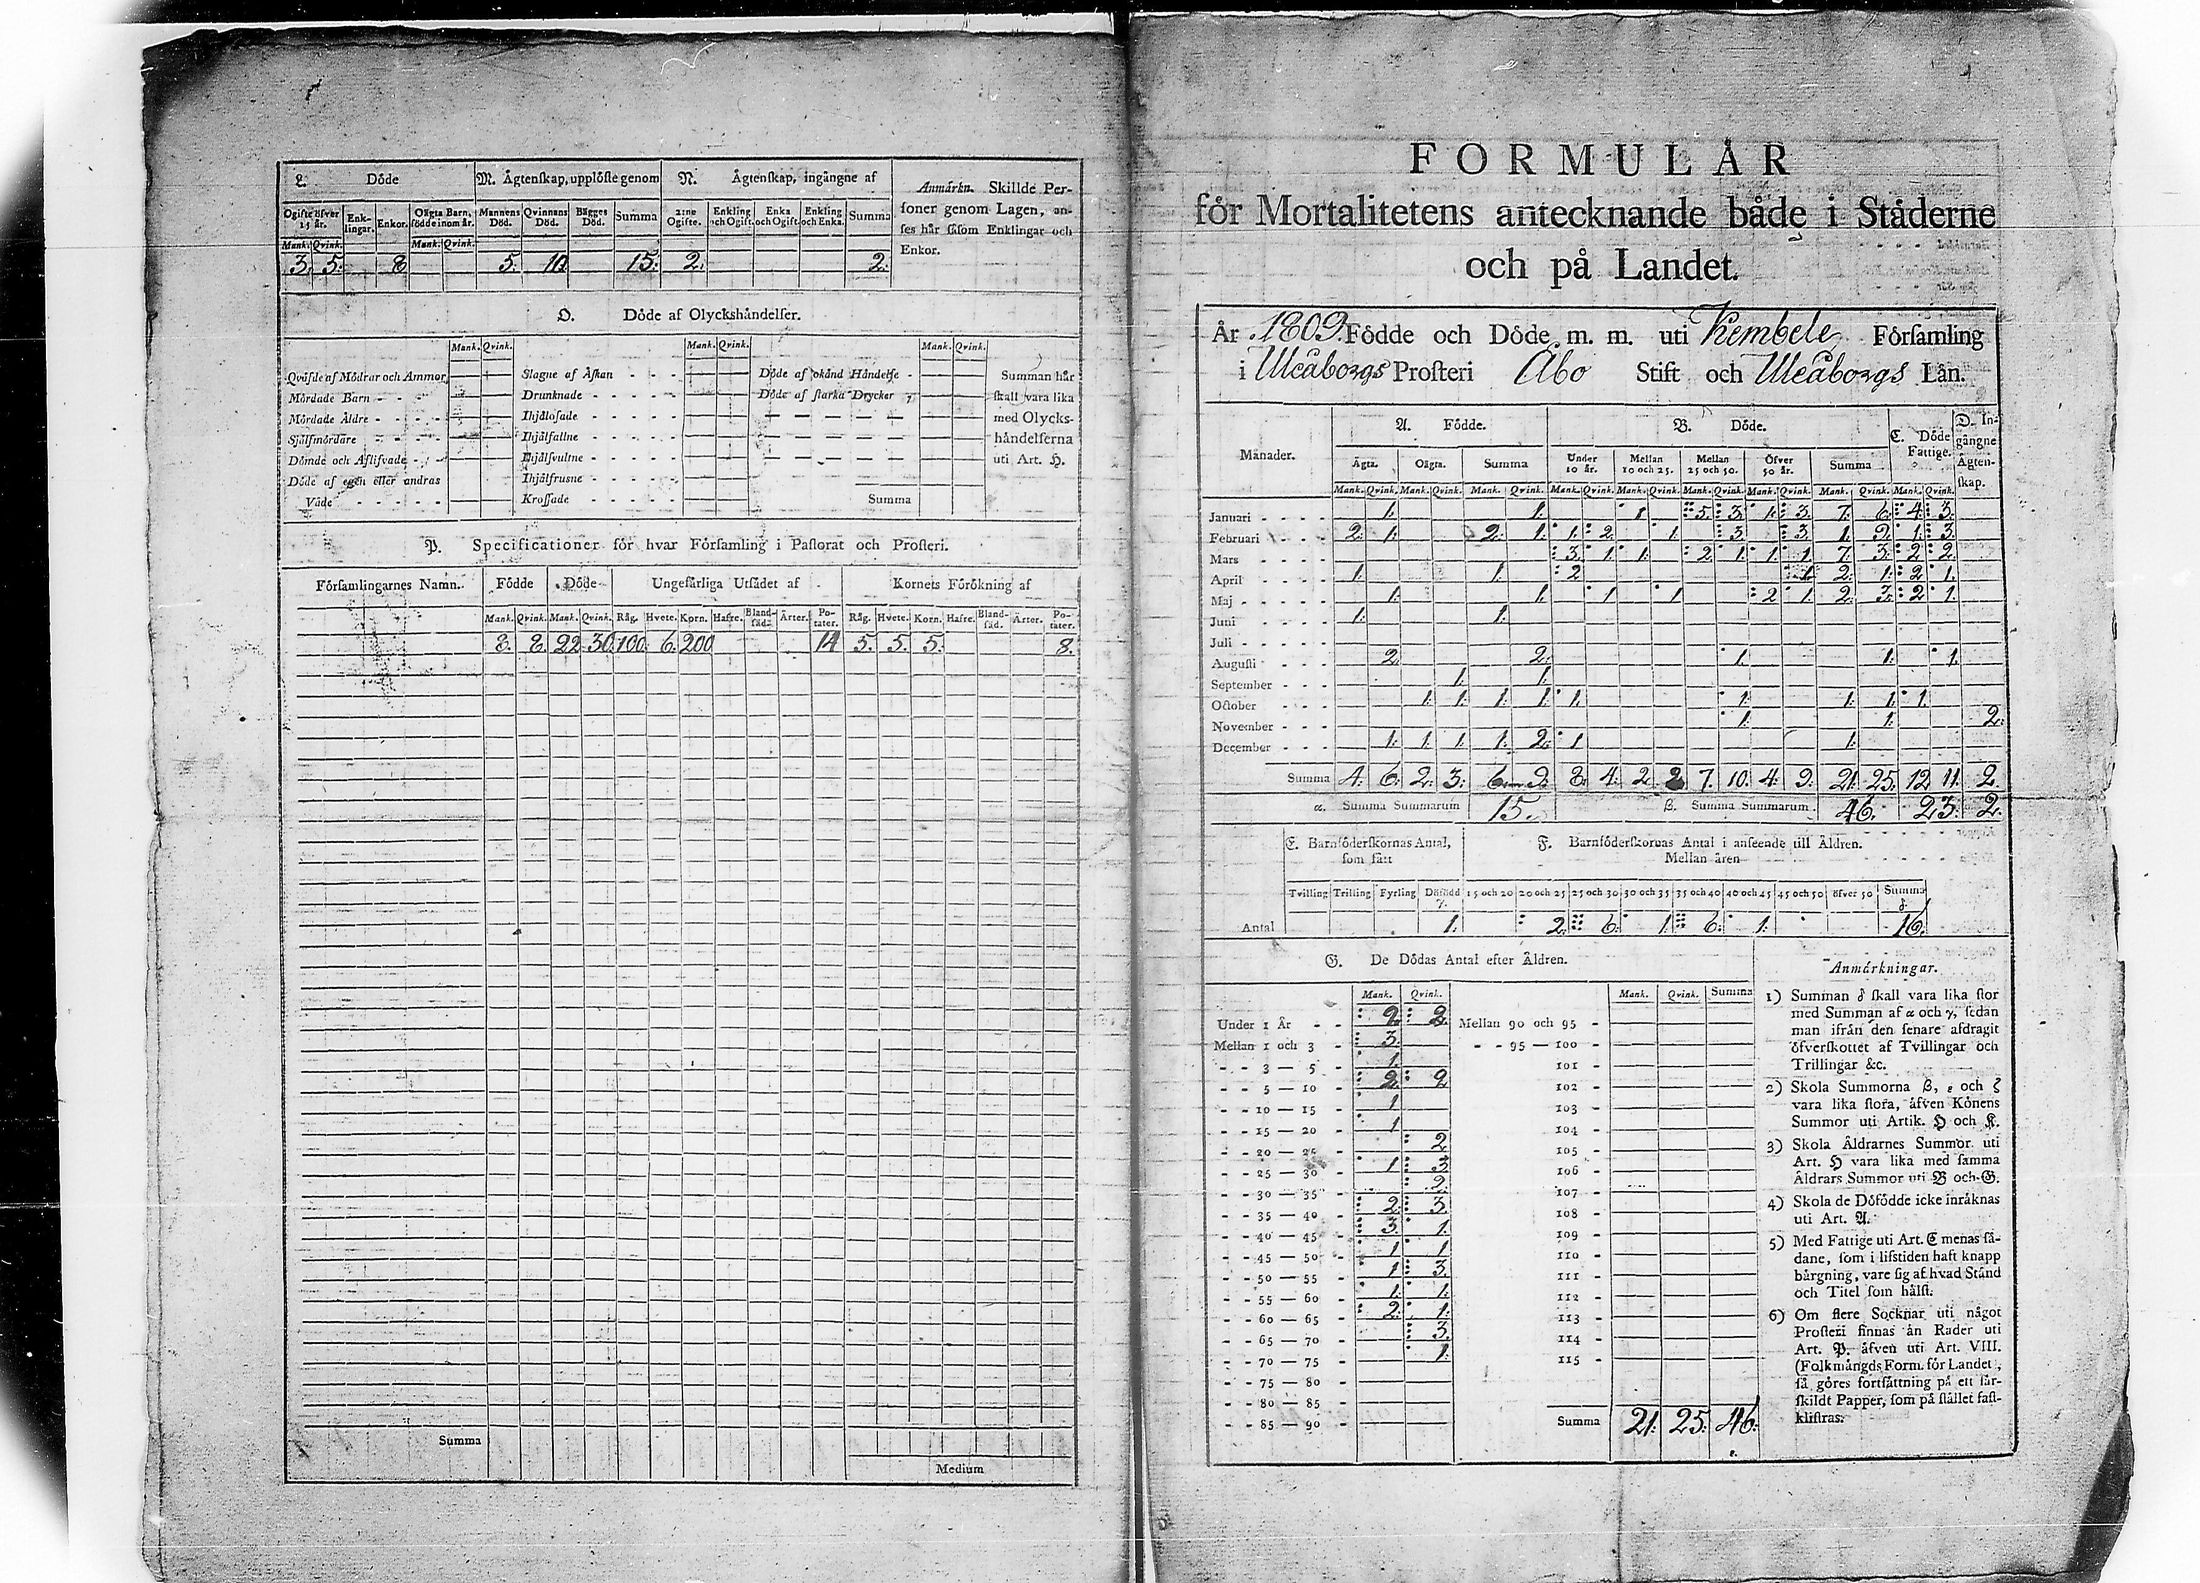 L. Döde
M. Ägtenskap, upplöste genom
N. Ägtenskap, ingångne af
Anmärkn. Skillde Per-
soner genom Lagen, an-
ses här såsom Enklingar och
Enkor.
Ogifte öfver 15 år. Enk-lingar. Enkor. Oägta Barn, födde inom år. Mannens Död. Qvinnans Död. Bägges Död. Summa 2:ne Ogifte. Enkling och Ogift. Enka och Ogift. Enkling och Enka. Summa
Mank. Qvink. Mank. Qvink.
3. 5. 8 5. 10 15. 2. 2.
O. Döde af Olyckshändelser.
Mank. Qvink. Mank. Qvink. Mank. Qvink.
Qväfde af Mödrar och Ammor Slagne af Åskan - - - Döde af okänd Händelse - Summan här
Mördade Barn - - - - Drunknade - - - - - Döde af starka Drycker skall vara lika
Mördade Äldre - - - - Ihjälosade - - - - - med Olycks-
Självmördare - - - - Ihjälfallne - - - - - händelserna
Dömde och Aflifvade - - - Ihjälsvultne - - - - uti Art. H.
Döde af egen eller andras Ihjälfrusne - - - -
Våde - - - - - Krossade - - - - - Summa
P. Specificationer för hvar Församling i Pastorat och Prosteri.
Församlingarnes Namn. Födde Döde Ungefärliga Utsädet af Kornets Förökning af
Mank. Qvink. Mank. Qvink. Råg. Hvete. Korn. Hafre. Bland-säd. Ärter. Po-tater. Råg. Hvete. Korn. Hafre. Bland-säd. Ärter. Po-tater.
8. 8. 22 30 100. 6. 200 14 5. 5. 5. 8.
Summa
Medium
FORMULÄR
för Mortalitetens antecknande både i Städerne
och på Landet.
År 1809. Födde och Döde m. m. uti Kembele Församling
i Uleåborgs Prosteri Åbo Stift och Uleåborgs Län.
Månader. A. Födde. B. Döde. C. Döde Fattige. D. In-gångne Ägten-skap.
Ägta. Oägta. Summa Under 10 år. Mellan 10 och 25. Mellan 25 och 50. Öfver 50 år. Summa
Mank. Qvink. Mank. Qvink. Mank. Qvink. Mank. Qvink. Mank. Qvink. Mank. Qvink. Mank. Qvink. Mank. Qvink. Mank. Qvink.
Januari - - - - 1. 1. 1 5. 3. 1. 3. 7. 6. 4. 3.
Februari - - - 2. 1. 2. 1. 1. 2. 1. 3. 3. 1. 9. 1. 3.
Mars - - - - 3. 1. 1. 2. 1. 1. 1. 7. 3. 2. 2.
April - - - - 1. 1. 2 1. 2. 1. 2. 1.
Maj - - - - 1. 1. 1 1 2 1. 2. 3. 2. 1.
Juni - - - - 1. 1.
Juli - - - -
Augusti - - - 2. 2. 1. 1. 1.
September - - - 1. 1.
October - - - 1. 1. 1. 1. 1. 1. 1. 1. 1.
November - - - 1. 1. 2.
December - - - 1. 1. 1. 1. 2. 1 1.
Summa 4. 6. 2. 3. 6. 9. 8. 4. 2. 2 7. 10. 4. 9. 21. 25. 12 11. 2.
α. Summa Summarum 15. β. Summa Summarum 46. 23. 2.
E. Barnföderskornas Antal, som fått
F. Barnföderskornas Antal i anseende till Åldren.
Mellan åren
Tvilling Trilling Fyrling Döfödd γ. 15 och 20 20 och 25 25 och 30 30 och 35 35 och 40 40 och 45 45 och 50 öfver 50 Summa δ.
Antal 1. 2. 6. 1. 6. 1. 16.
G. De Dödas Antal efter Åldren.
Mank. Qvink. Mank. Qvink. Summa
Under 1 År - - 2. 2. Mellan 90 och 95 -
Mellan 1 och 3 - 3. - - 95 — 100 -
- - 3 — 5 - 1. 101 -
- - 5 — 10 - 2. 2 102 -
- - 10 — 15 - 1 103 -
- - 15 — 20 - 1 104 -
- - 20 — 25 - 2 105 -
- - 25 — 30 - 1 3. 106 -
- - 30 — 35 - 2. 107 -
- - 35 — 40 - 2. 3. 108 -
- - 40 — 45 - 3. 1. 109 -
- - 45 — 50 - 1 1 110 -
- - 50 — 55 - 1 3. 111 -
- - 55 — 60 - 1. 1. 112 -
- - 60 — 65 - 2. 1. 113 -
- - 65 — 70 - 3. 114 -
- - 70 — 75 - 1. 115 -
- - 75 — 80 -
- - 80 — 85 -
- - 85 — 90 - Summa 21. 25. 46.
Anmärkningar.
1) Summan δ skall vara lika stor
med Summan af α och γ, sedan
man ifrån den senare afdragit
öfverskottet af Tvillingar och
Trillingar &c.
2) Skola Summorna β, ε och ζ
vara lika stora, äfven Könens
Summor uti Artik. H och K.
3) Skola Åldrarnes Summor uti
Art. H vara lika med samma
Åldrars Summor uti B och G.
4) Skola de Döfödde icke inräknas
uti Art. A.
5) Med Fattige uti Art. C menas så-
dane, som i lifstiden haft knapp
bärgning, vare sig af hvad Stånd
och Titel som hälst.
6) Om flere Socknar uti något
Prosteri finnas än Rader uti
Art. P. äfven uti Art. VIII.
(Folkmängds Form. för Landet),
så göres fortsättning på ett sär-
skildt Papper, som på stället fast-
klistras.